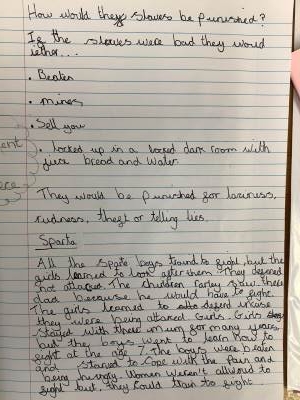 How would they slaves be punished?
If the slaves were bad they would
iether...
• Beaten
• mines
• Sell you
• locked up in a locked dark room with
juce bread and water
They would be punished for laziness,
rudness, theft or telling lies.
Sparta
All the Sparte boys traind to fight, but the
girls learned to look after them. They defened
not attacke. The children rarley saw there
dad because he would have to fight.
The girls learned to defend incase
they were being attacked. Girls
stayed with there mum for many years
but they boys went to learn how to
fight at the age 7. The boys were beaten
and starved to cope with the pain and
being hungry. Women weren't allwoud to
fight but they could train to fight.
ent
ece